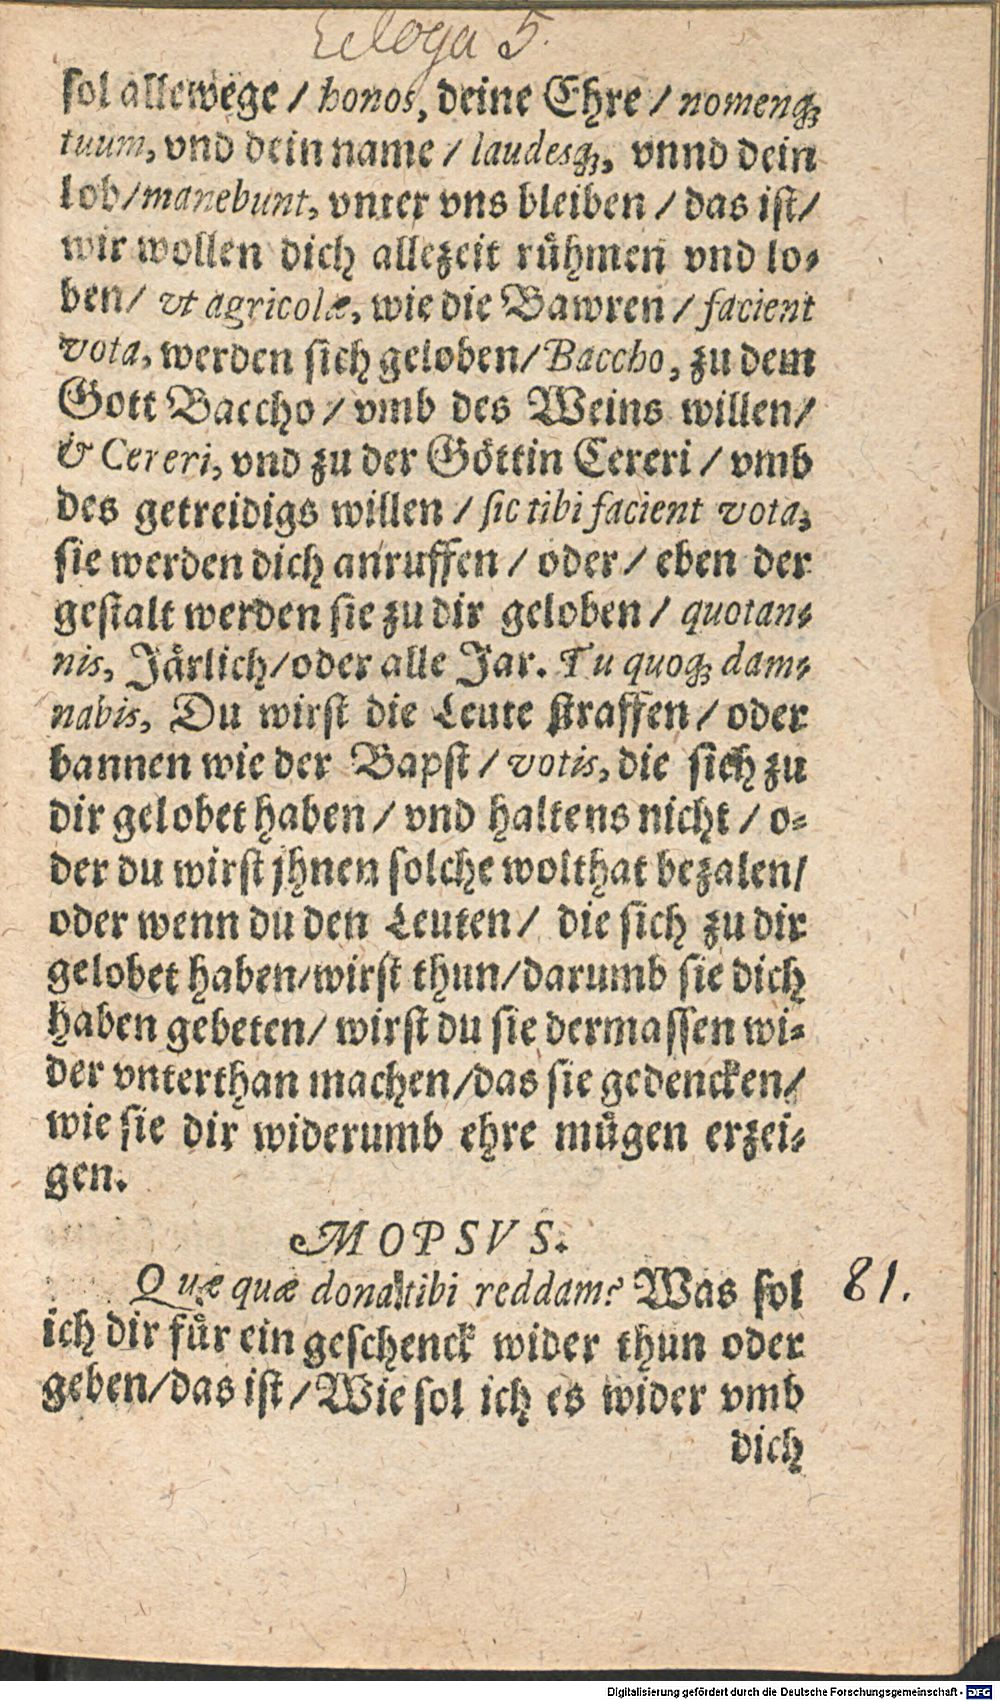 Ecloga 5.
sol allewege / honos, deine Ehre / nomenq́;
tuum, vnd dein name / laudesq́;, vnnd dein
lob / manebunt, vnter vns bleiben / das ist /
wir wollen dich allezeit rühmen vnd lo-
ben / vt agricolæ, wie die Bawren / facient
vota, werden sich geloben / Baccho, zu dem
Gott Baccho / vmb des Weins willen /
& Cereri, vnd zu der Göttin Cereri / vmb
des getreidigs willen / sic tibi facient vota,
sie werden dich anruffen / oder / eben der
gestalt werden sie zu dir geloben / quotan-
nis, Järlich / oder alle Jar. Tu quoq́; dam-
nabis, Du wirst die Leute straffen / oder
bannen wie der Bapst / votis, die sich zu
dir gelobet haben / vnd haltens nicht / o-
der du wirst jhnen solche wolthat bezalen /
oder wenn du den Leuten / die sich zu dir
gelobet haben / wirst thun / darumb sie dich
haben gebeten / wirst du sie dermassen wi-
der vnterthan machen / das sie gedencken /
wie sie dir widerumb ehre mügen erzei-
gen.
MOPSVS.
Quæ quæ dona tibi reddam? Was sol 81.
ich dir für ein geschenck wider thun oder
geben / das ist / Wie sol ich es wider vmb
dich
Digitalisierung gefördert durch die Deutsche Forschungsgemeinschaft - DFG